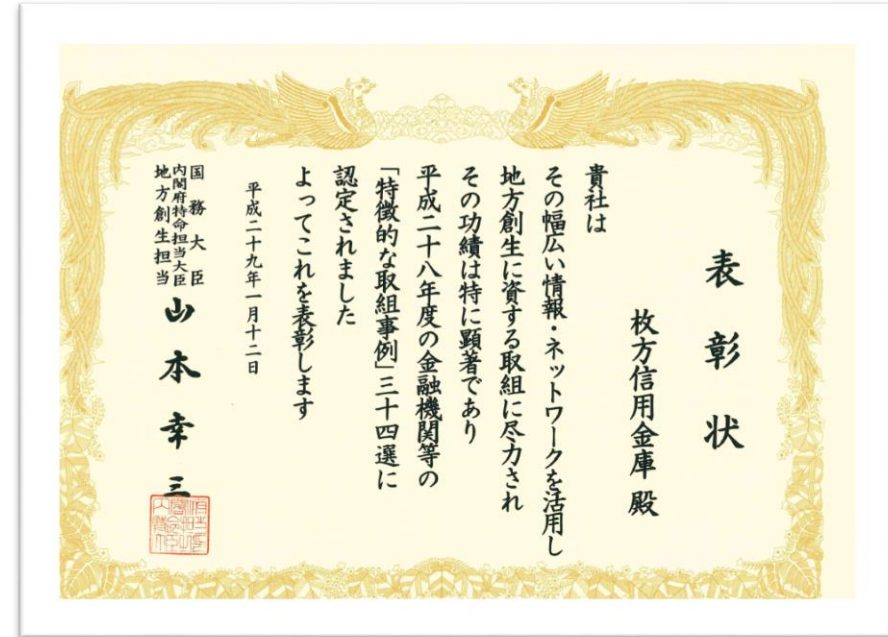 表彰状
枚方信用金庫 殿
貴社は
その幅広い情報・ネットワークを活用し
地方創生に資する取組に尽力され
その功績は特に顕著であり
平成二十八年度の金融機関等の
「特徴的な取組事例」三十四選に
認定されました
よってこれを表彰します
平成二十九年一月十二日
国務大臣
内閣府特命担当大臣
地方創生担当
山本幸三